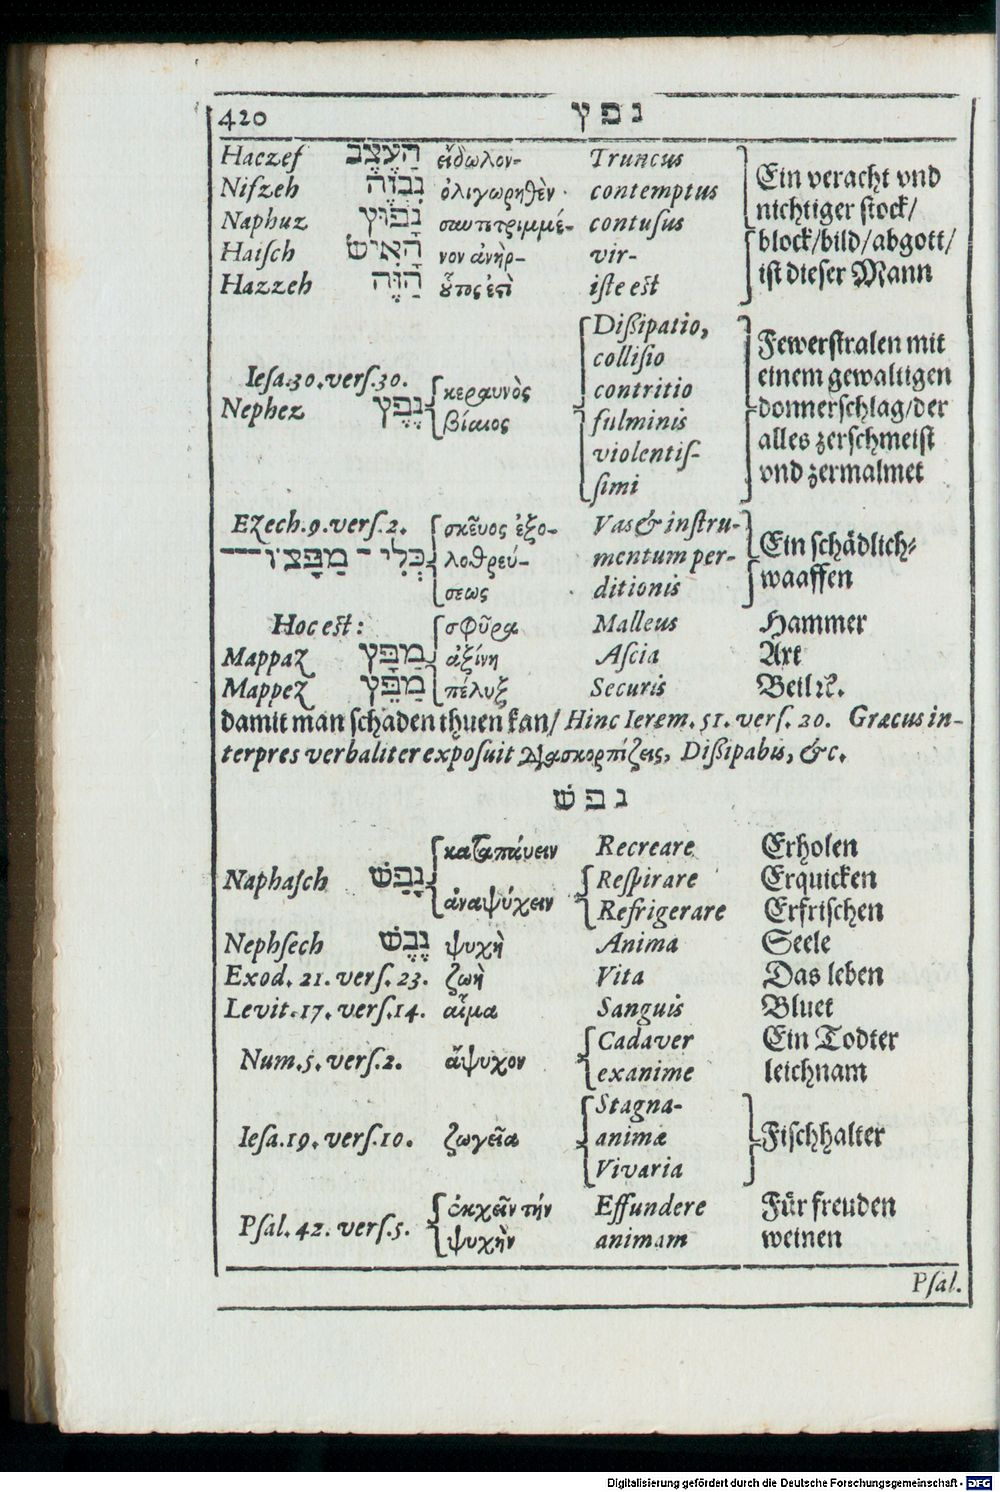 420 נ פ ץ
Haczef הַעֶצֶב εἴδωλον- Truncus Ein veracht vnd
Nifzeh נִבְזֶה ὀλιγωρηθὲν · contemptus nichtiger stock/
Naphuz נָפוּץ συντετριμμέ- contusus block/bild/abgott/
Haisch הָאִישׁ νον ἀνὴρ- vir- ist dieser Mann
Hazzeh הַזֶּה οὗτος ἐστὶ iste est
Dißipatio, Fewerstralen mit
collisio einem gewaltigen
Iesa.30.vers.30. κεραυνὸς contritio donnerschlag/der
Nephez נֶפֶץ βίαιος fulminis alles zerschmeist
violentis- vnd zermalmet
simi
Ezech.9.vers.2. σκεῦος ἐξο- Vas & instru- Ein schädlich-
כְּלִי - מַפָּצוֹ λοθρεύ- mentum per- waaffen
σεως ditionis
Hoc est: σφῦρα Malleus Hammer
Mappaz מַפָּץ ἀξίνη Ascia Axt
Mappez מַפֵּץ πέλυξ Securis Beil ꝛc.
damit man schaden thuen kan/ Hinc Ierem. 51. vers. 20. Græcus in-
terpres verbaliter exposuit Διασκορπίζεις, Dißipabis, &c.
נ פ שׁ
καταπάυειν Recreare Erholen
Naphasch נָפַשׁ Respirare Erquicken
ἀναψύχειν Refrigerare Erfrischen
Nephsech נֶפֶשׁ ψυχὴ Anima Seele
Exod. 21. vers. 23. ζωὴ Vita Das leben
Levit.17. vers.14. αἷμα Sanguis Bluet
Num.5. vers.2. ἄψυχον Cadaver Ein Todter
exanime leichnam
Stagna-
Iesa.19. vers.10. ζωγεῖα animæ Fischhalter
Vivaria
Psal. 42. vers.5. ἐκχεῖν τήν Effundere Für freuden
ψυχὴν animam weinen
Psal.
Digitalisierung gefördert durch die Deutsche Forschungsgemeinschaft - DFG